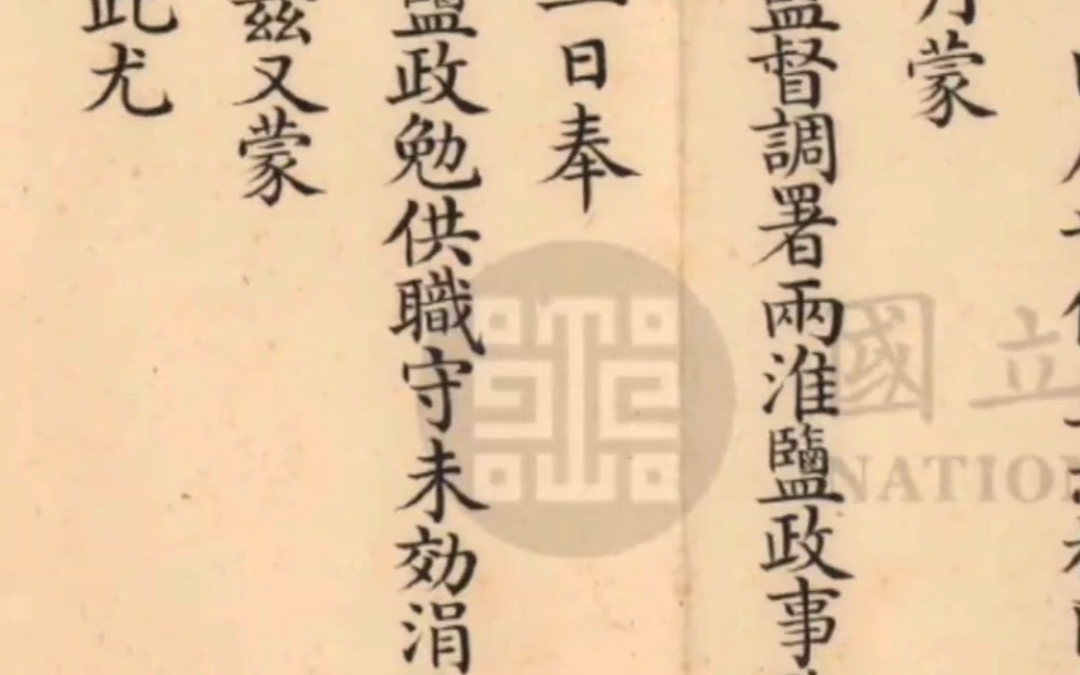 月蒙
監督調署兩淮鹽政事
日奉
鹽政勉供職守未効涓
茲又蒙
此尤
國立
NATION